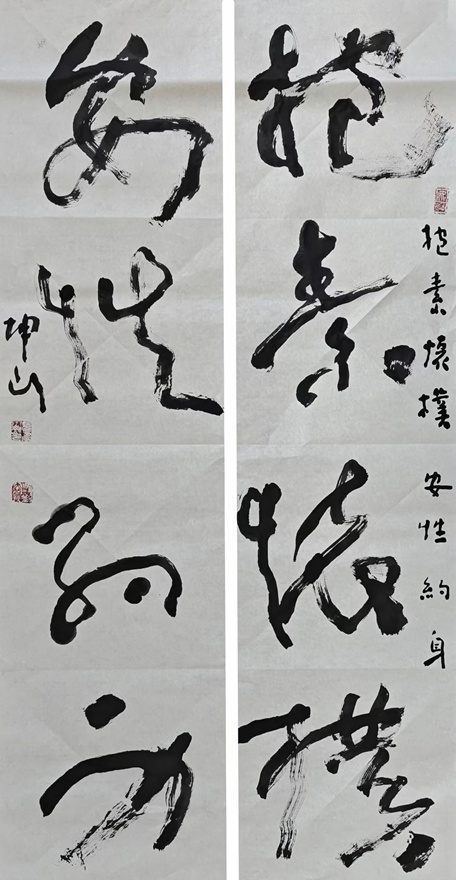 抱素懷樸 安性約身
抱素懷樸
安性約身
坤山